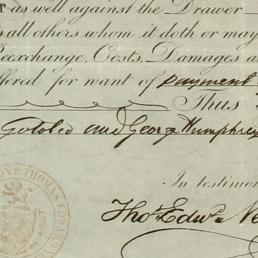 T as well against the Drawer
s all others whom it doth or may
Reexchange, Costs, Damages a
ffered for want of payment
Thus
Gotobed and George Humphrey
In testimon
Thos. Edwd. Ne
THOMAS EDWARD